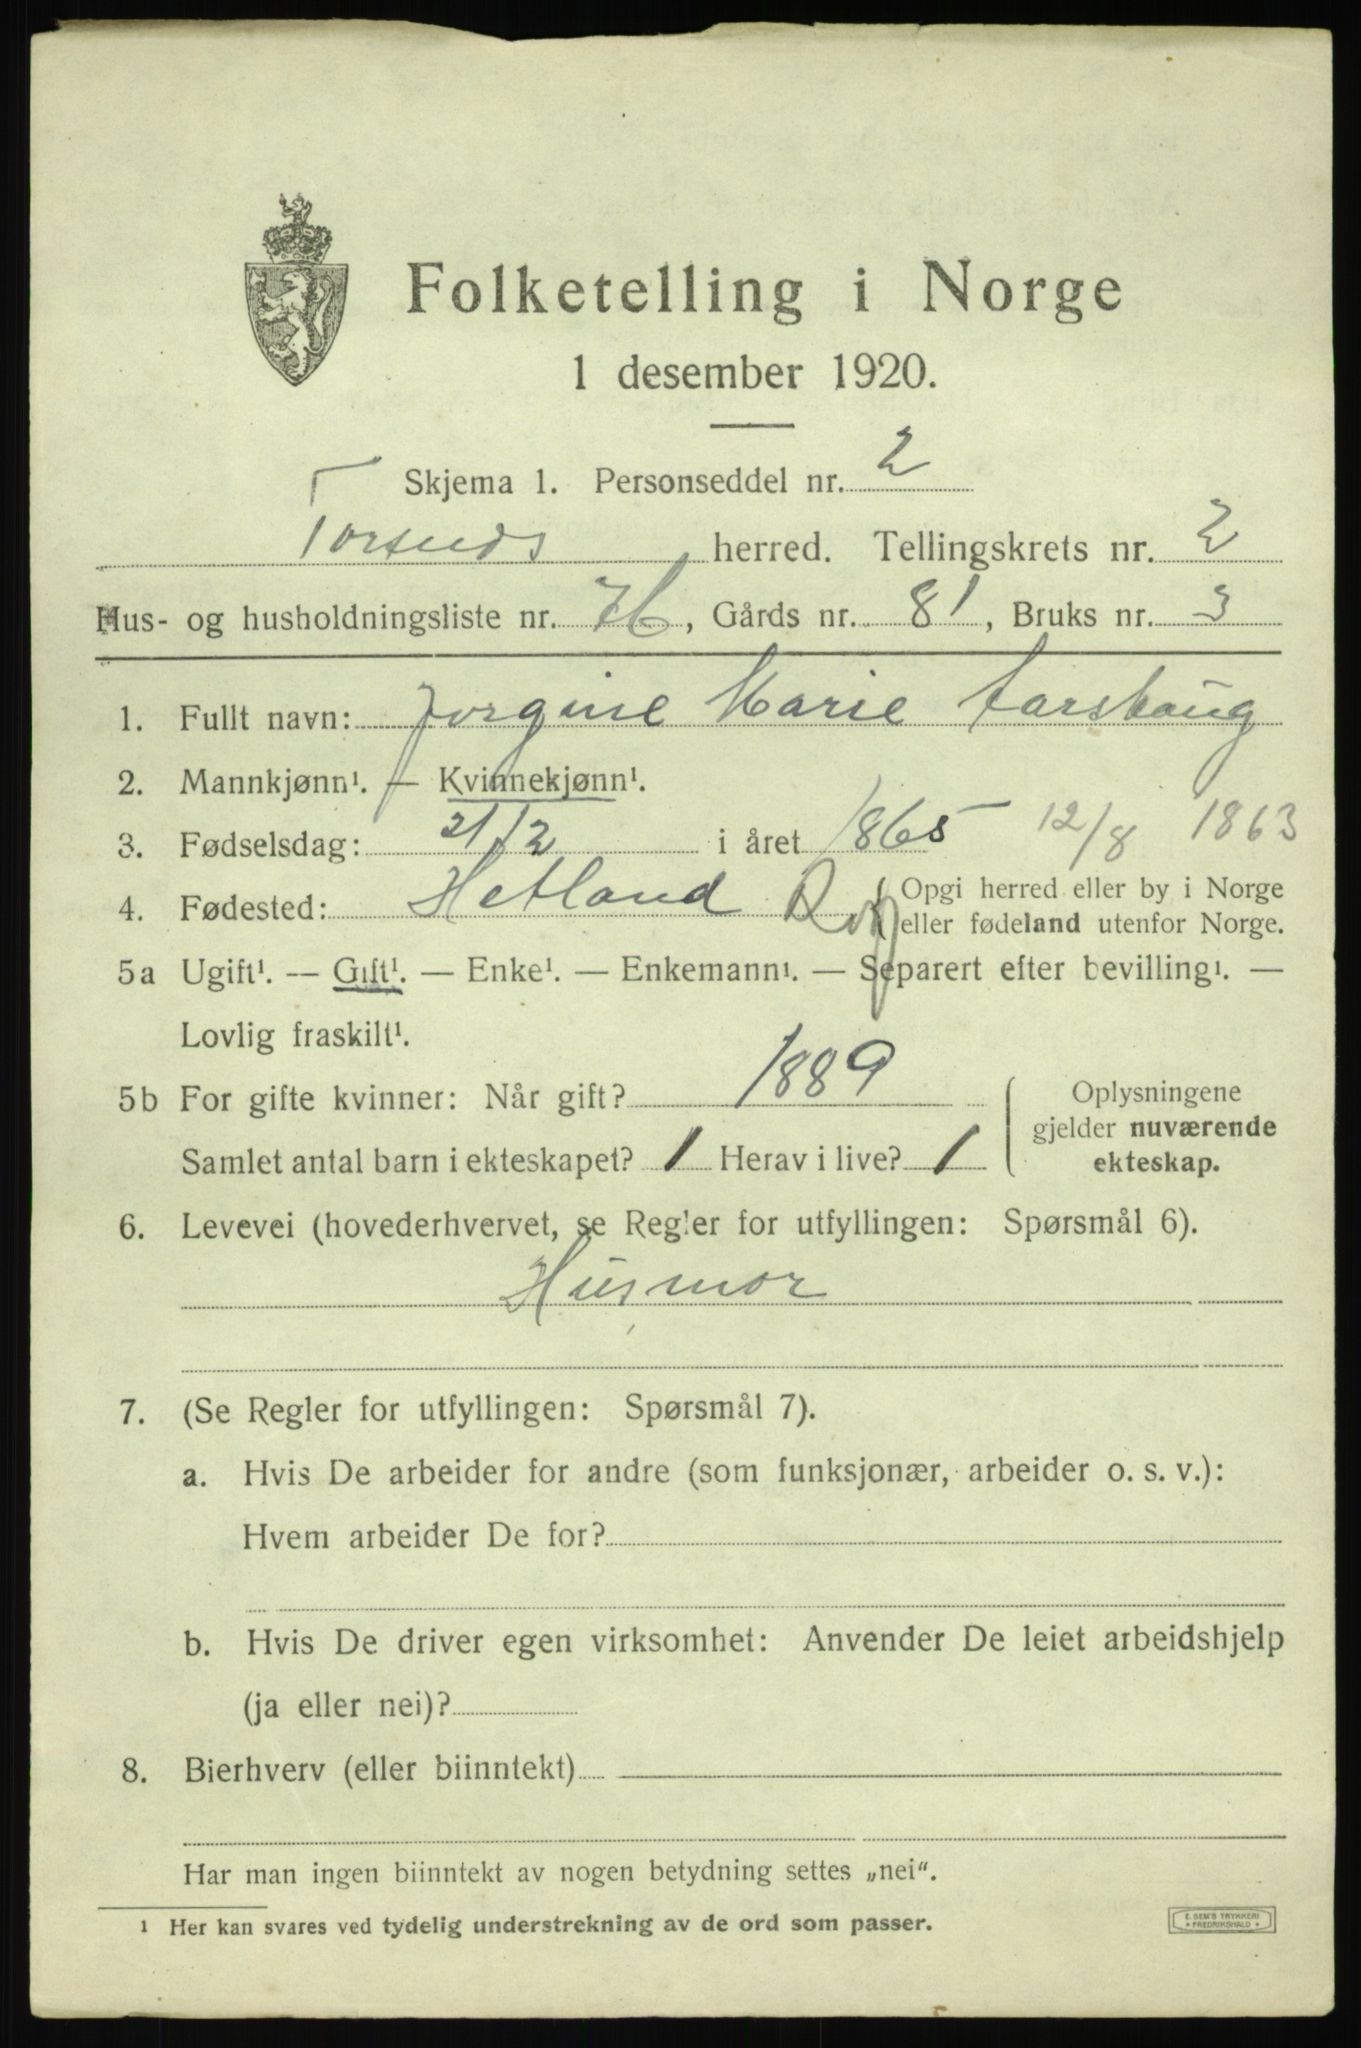 Folketelling i Norge
1 desember 1920.
Skjema 1. Personseddel nr. 2
Torsnds herred. Tellingskrets nr. 2
Hus- og husholdningsliste nr. 76, Gårds nr. 81, Bruks nr. 3
1. Fullt navn: Jorgine Marie Aarshaug
2. Mannkjønn¹. — Kvinnekjønn¹.
3. Fødselsdag: 21/2 i året 1865 12/8 1863
4. Fødested: Hetland (Opgi herred eller by i Norge
eller fødeland utenfor Norge.
5a Ugift¹. — Gift¹. — Enke¹. — Enkemann¹. — Separert efter bevilling¹. —
Lovlig fraskilt¹.
5b For gifte kvinner: Når gift? 1889
Samlet antal barn i ekteskapet? 1 Herav i live? 1
Oplysningene
gjelder nuværende
ekteskap.
6. Levevei (hovederhvervet, se Regler for utfyllingen: Spørsmål 6).
Husmor
7. (Se Regler for utfyllingen: Spørsmål 7).
a. Hvis De arbeider for andre (som funksjonær, arbeider o. s. v.):
Hvem arbeider De for?
b. Hvis De driver egen virksomhet: Anvender De leiet arbeidshjelp
(ja eller nei)?
8. Bierhverv (eller biinntekt)
Har man ingen biinntekt av nogen betydning settes „nei“.
¹ Her kan svares ved tydelig understrekning av de ord som passer.
E. SEM'S TRYKKERI
FREDRIKSHALD